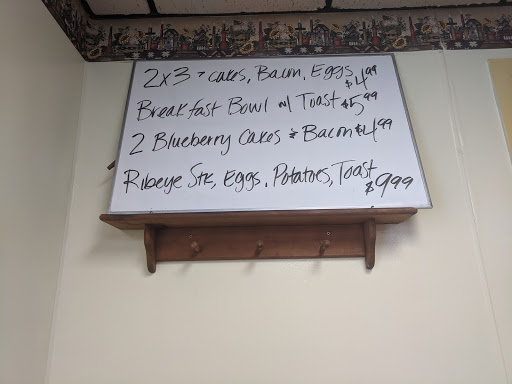 2x3 - cakes, Bacon, Eggs $4.99
Breakfast Bowl w/ Toast $5.99
2 Blueberry Cakes & Bacon $4.99
Ribeye Stk, Eggs, Potatoes, Toast $9.99